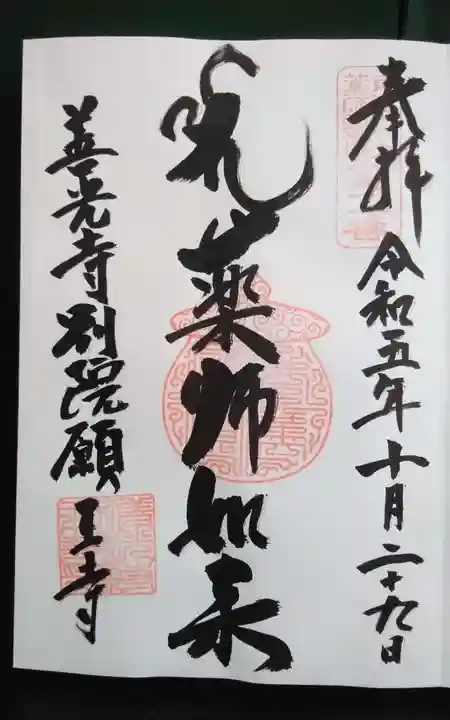 奉拝 令和五年十月二十九日
薬師如来
善光寺別院願王寺